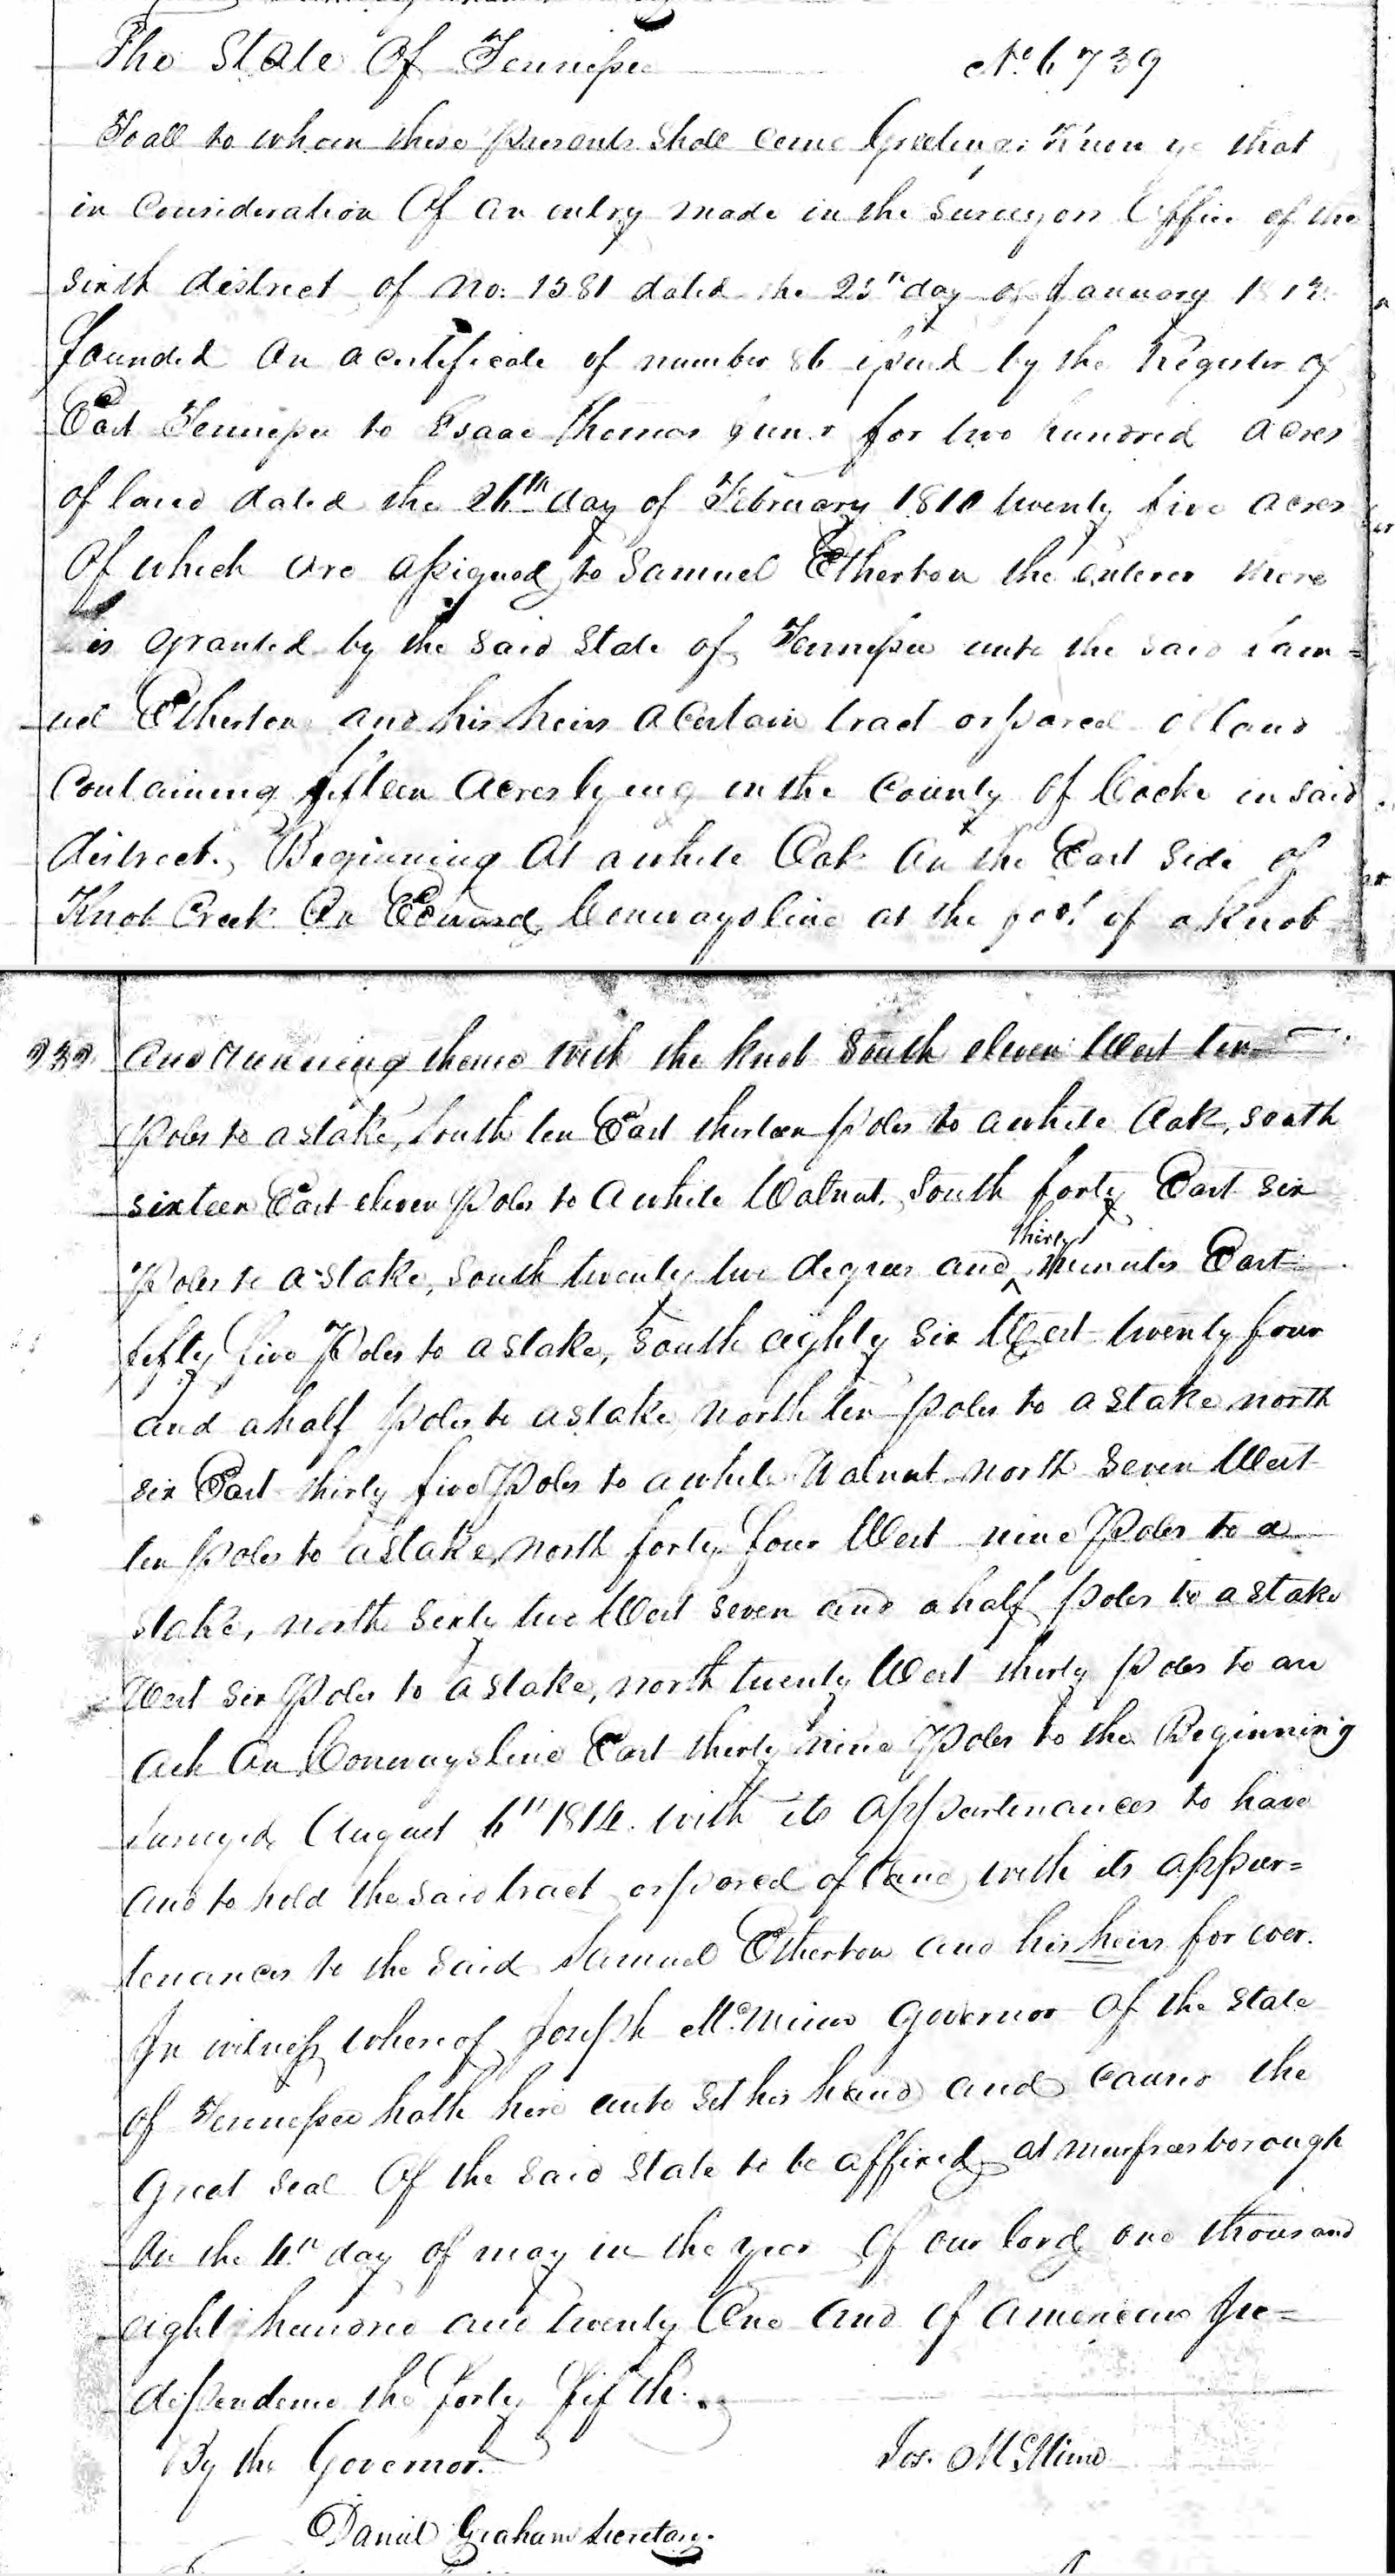 The State Of Tennessee No. 6739
To all to whom these presents shall come Greeting: Know ye that
in Consideration Of an entry made in the surveyors Office of the
sixth district of No: 1581 dated the 25th day of January 181
founded On a certificate of number 86 issued by the Register of
East Tennessee to Isaac Thomas Junr for two hundred acres
of land dated the 26th day of February 1810 twenty five acres
Of which are assigned to Samuel Etherton the enterer there
is granted by the said State of Tennessee unto the said Sam=
uel Etherton and his heirs a Certain tract or parcel of land
Containing fifteen Acres lying in the County Of Cocke in said
district. Beginning At a white Oak On the East side of
Knob Creek On Edward Conways line at the foot of a Knob
232 And running thence with the knob South eleven West ten
Poles to a stake, South ten East thirteen poles to a white Oak, south
sixteen East eleven Poles to a white Walnut. South forty East six
Poles to a stake, South twenty two degrees and thirty minutes East
fifty five Poles to a stake, South eighty six West twenty four
and a half poles to a stake north ten poles to a stake north
six East thirty five Poles to a white Walnut north seven West
ten poles to a stake, north forty four West nine Poles to a
stake, north sixty two West seven and a half poles to a stake
West six Poles to a stake, north twenty West thirty poles to an
Ash On Conways line East thirty nine Poles to the Beginning
Surveyed August 6th 1814. with its appurtenances to have
and to hold the said tract or parcel of land with its appur=
tenances to the said Samuel Etherton and his heirs for ever.
In witness whereof Joseph McMinn Governor Of the State
of Tennessee hath here unto set his hand and caused the
Great seal Of the said State to be affixed at murfreesborough
On the 4th day of may in the year Of our lord one thousand
eight hundred and twenty One and of American In=
dependence the forty fifth.
By the Governor. Jos. McMinn
Daniel Graham Secretary.